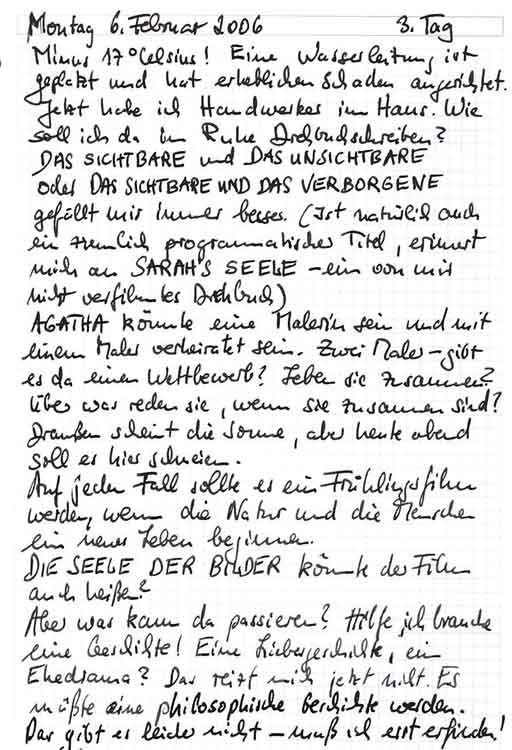 Montag 6. Februar 2006 3. Tag
Minus 17° Celsius! Eine Wasserleitung ist
geplatzt und hat erheblichen Schaden angerichtet.
Jetzt habe ich Handwerker im Haus. Wie
soll ich da in Ruhe Drehbuchschreiben?
DAS SICHTBARE und DAS UNSICHTBARE
oder DAS SICHTBARE UND DAS VERBORGENE
gefällt mir immer besser. (Ist natürlich auch
ein ziemlich programmatischer Titel, erinnert
mich an SARAH'S SEELE - ein von mir
nicht verfilmtes Drehbuch)
AGATHA könnte eine Malerin sein und mit
einem Maler verheiratet sein. Zwei Maler - gibt
es da einen Wettbewerb? Leben sie zusammen?
Über was reden sie, wenn sie zusammen sind?
Draußen scheint die Sonne, aber heute abend
soll es hier schneien.
Auf jeden Fall sollte es ein Frühlingsfilm
werden, wenn die Natur und die Menschen
ein neues Leben beginnen.
DIE SEELE DER BILDER könnte der Film
auch heißen?
Aber was kann da passieren? Hilfe, ich brauche
eine Geschichte! Eine Liebesgeschichte, ein
Ehedrama? Das reizt mich jetzt nicht. Es
müßte eine philosophische Geschichte werden.
Das gibt es leider nicht - muß ich erst erfinden!